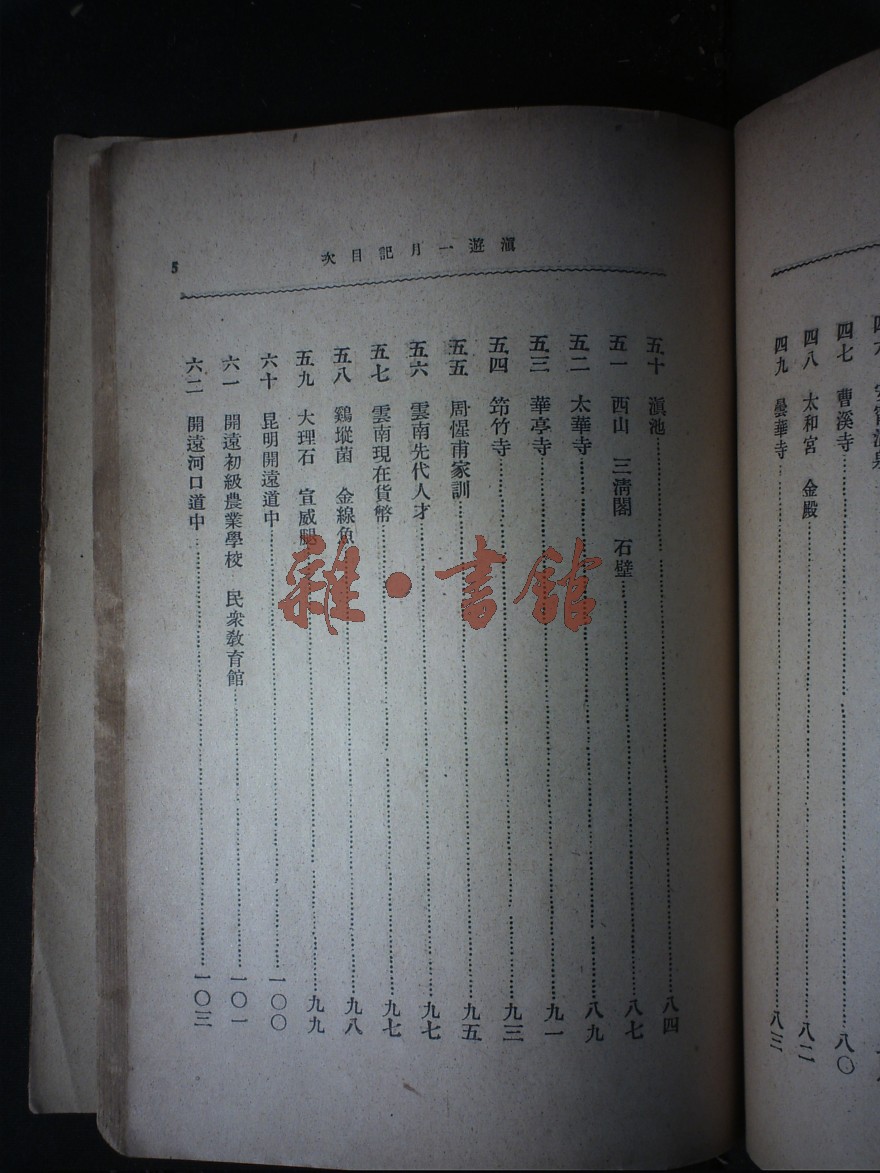 四七　曹溪寺……八〇
四八　太和宮　金殿……八二
四九　曇華寺……八三
滇遊一月記目次
5
五十　滇池……八四
五一　西山　三清閣　石壁……八七
五二　太華寺……八九
五三　華亭寺……九一
五四　筇竹寺……九三
五五　周惺甫家訓……九五
五六　雲南先代人才……九七
五七　雲南現在貨幣……九七
五八　鷄㙡菌　金線魚……九八
五九　大理石　宣威腿……九九
六十　昆明開遠道中……一〇〇
六一　開遠初級農業學校　民衆敎育館……一〇一
六二　開遠河口道中……一〇三
雜·書館